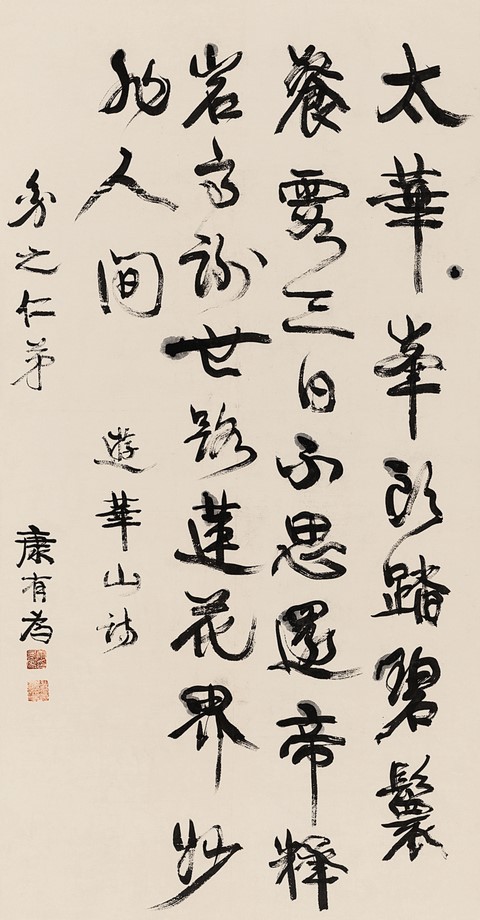 太華峯頭踏碧鬟
餐霞三日不思還帝釋
岩高謝世路蓮花界妙
絶人間
遊華山詩
之仁弟
康有為